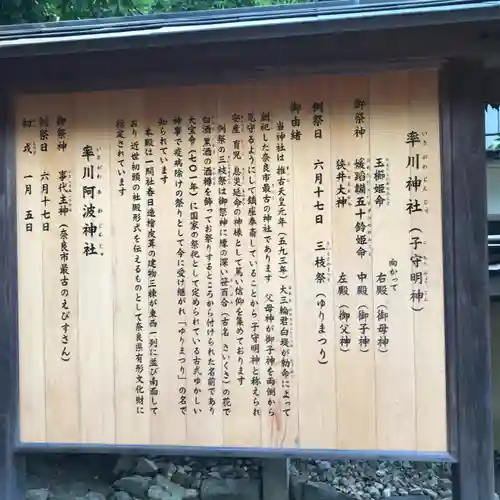 率川神社(子守明神)
いさがわじんじゃ
こもりみょうじん
御祭神
玉櫛姫命
向かって
右殿(御母神)
媛蹈韛五十鈴姫命
中殿(御子神)
狭井大神
左殿(御父神)
例祭日 六月十七日 三枝祭(ゆりまつり)
御由緒
当神社は推古天皇元年(五九三年)大三輪君白堤が勅命によって
創祀した奈良市最古の神社であります 父母神が御子神を両側から
見守るようにして鎮座奉斎していることから子守明神と称えられ
安産 育児 息災延命の神様として篤い信仰を集めております
例祭の三枝祭は御祭神に縁の深い笹百合(古名 さいくさ)の花で
白酒 黒酒の酒樽を飾ってお祭りするところから付けられた名前であり
大宝令(七〇一年)に国家の祭祀として定められている古式ゆかしい
神事で疫病除けの祭りとして今に受け継がれ「ゆりまつり」の名で
知られています
本殿は一間社春日造檜皮葺の建物三棟が東西一列に並び南面して
おり 近世初頭の社殿形式を伝えるものとして奈良県有形文化財に
指定されています
率川阿波神社
いさがわあわじんじゃ
御祭神 事代主神(奈良市最古のえびすさん)
例祭日 六月十七日
初戎 一月 五日